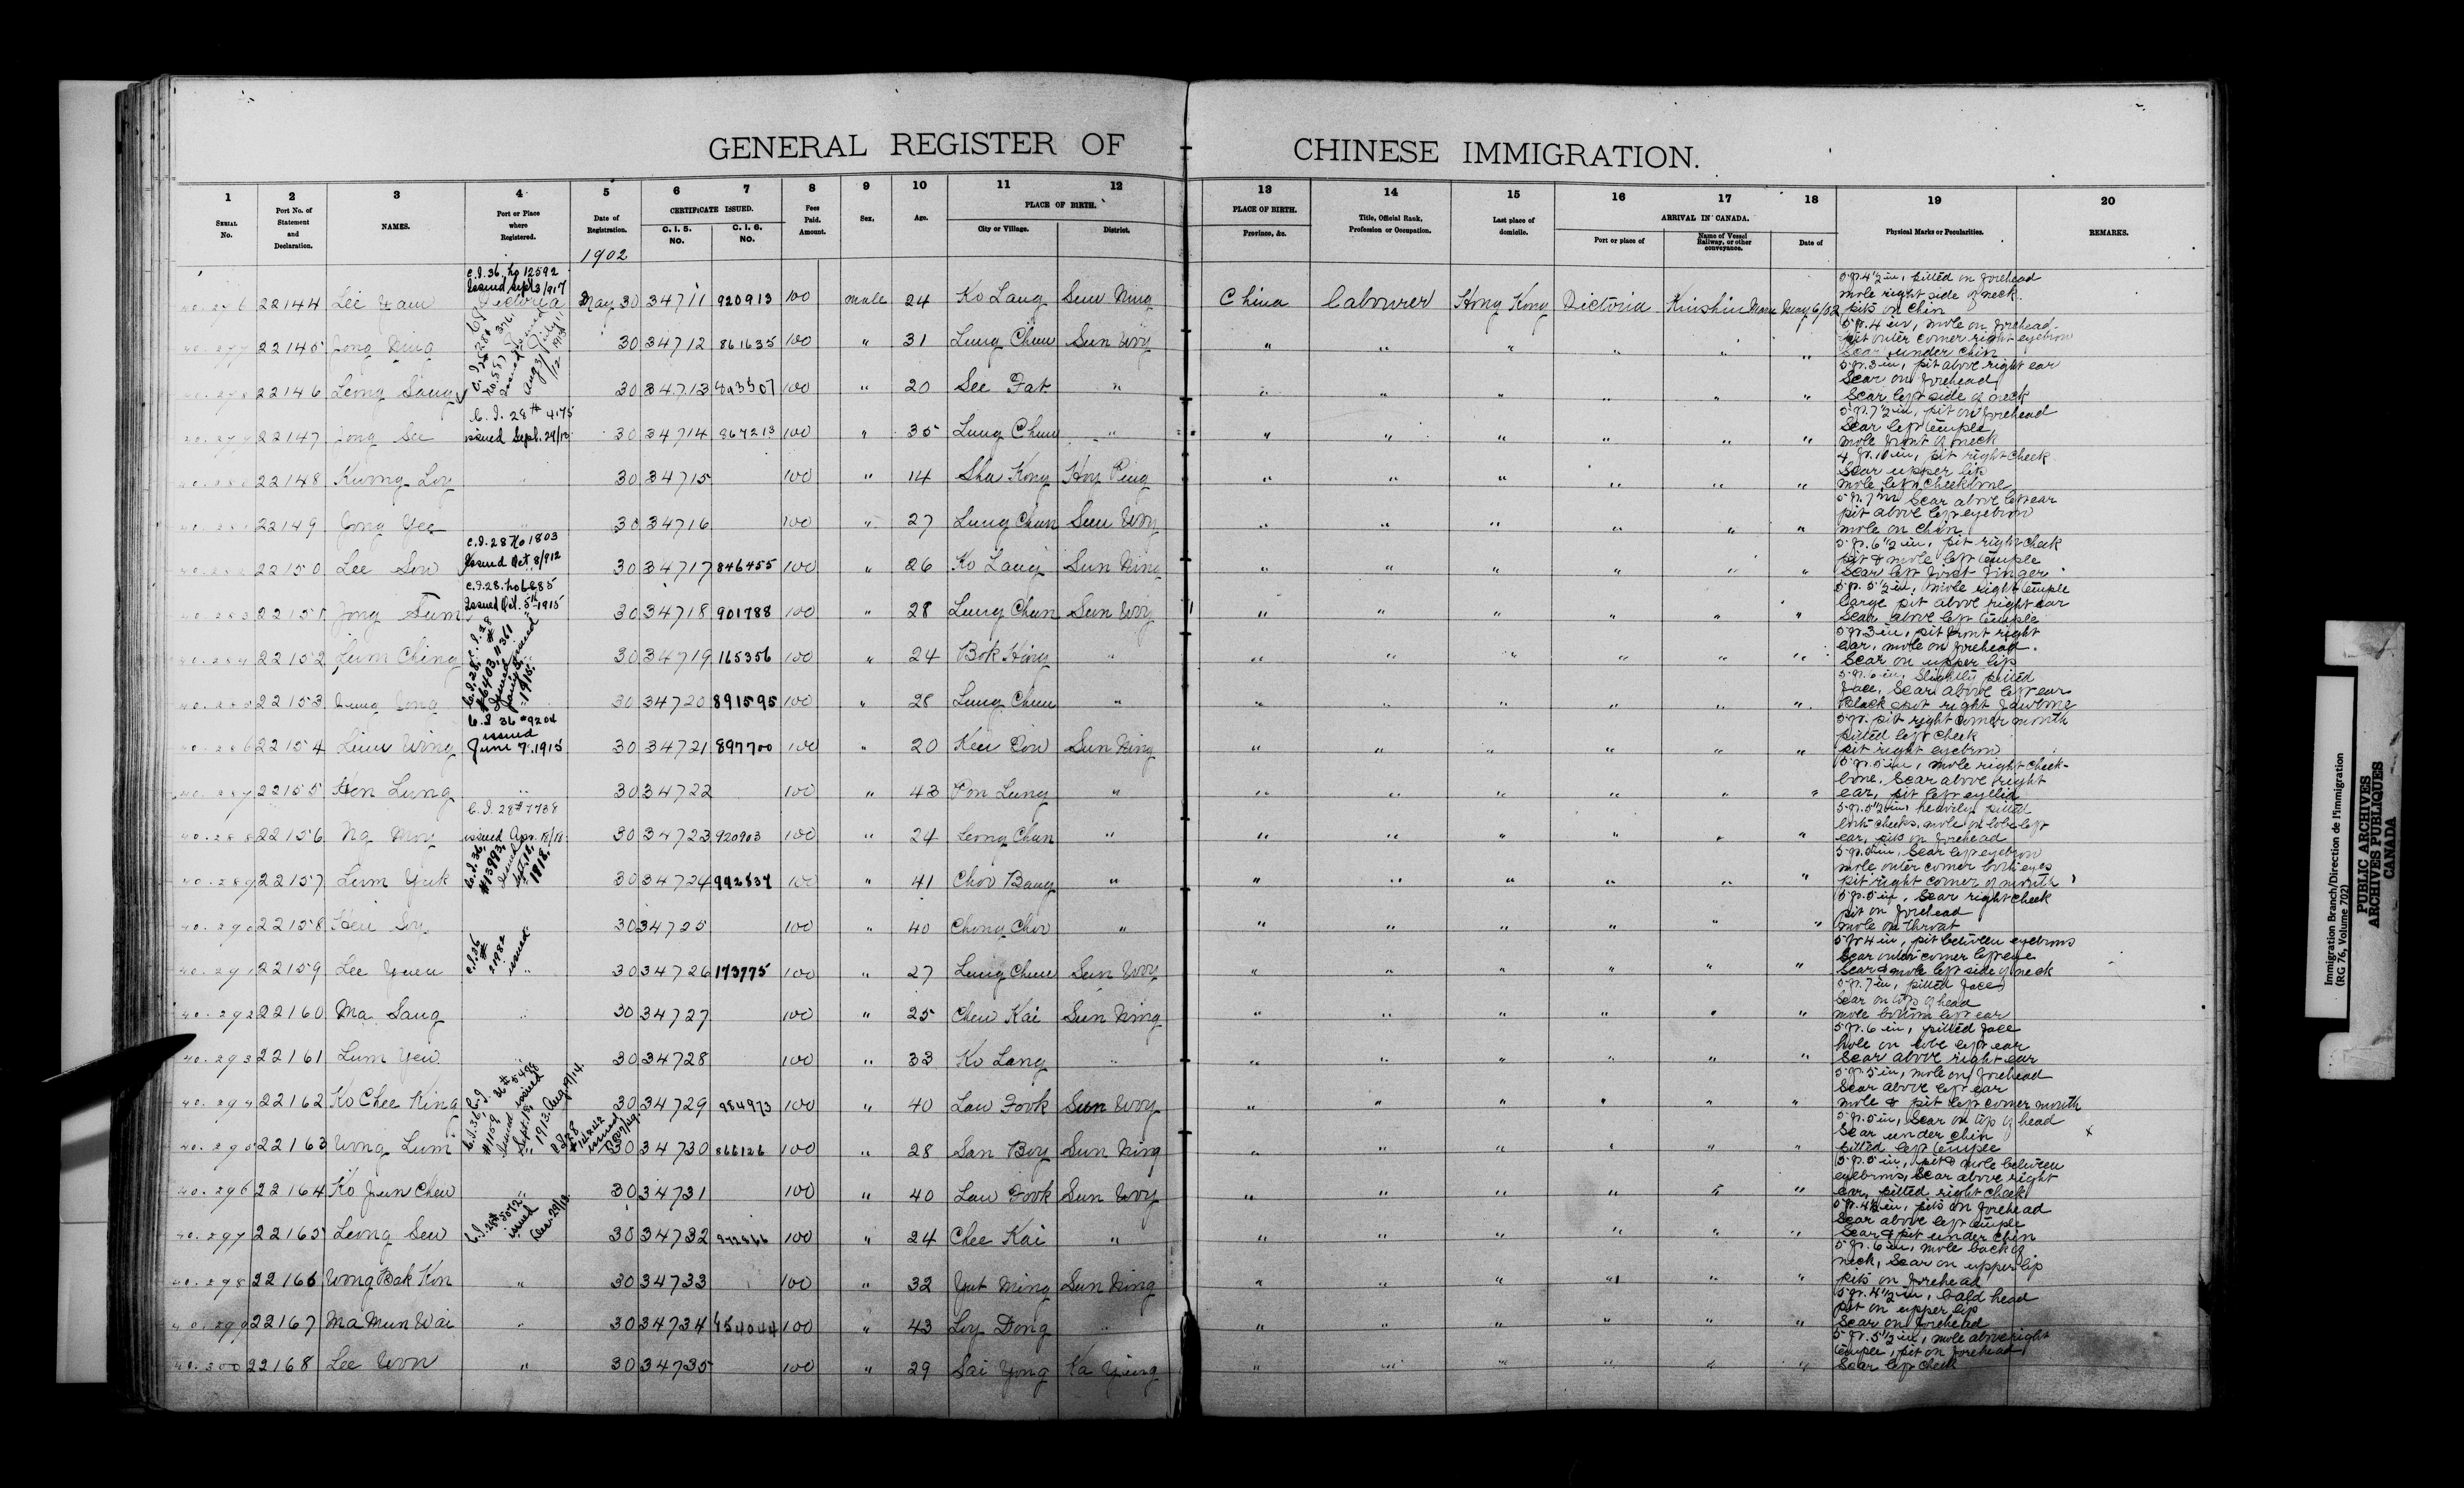 GENERAL REGISTER OF CHINESE IMMIGRATION.
1 2 3 4 5 6 7 8 9 10 11 12 13 14 15 16 17 18 19 20
SERIAL No. Port No. of Statement and Declaration. NAMES. Port or Place where Registered. Date of Registration. CERTIFICATE ISSUED. C. I. 5. NO. C. I. 6. NO. Fees Paid. Amount. Sex. Age. PLACE OF BIRTH. City or Village. District. PLACE OF BIRTH. Province, &c. Title, Official Rank, Profession or Occupation. Last place of domicile. ARRIVAL IN CANADA. Port or place of Name of Vessel Railway, or other conveyance. Date of Physical Marks or Peculiarities. REMARKS.
1902
22144 Victoria May 30 34711 920913 100 male 24 Ko Lang Sun Ning China Labourer Hong Kong Victoria Kinshiu Maru May 6/02 5 ft. 4½ in, pitted on forehead mole right side of neck. pits on chin
22145 Jong 30 34712 861635 100 " 31 Lung Chun Sun Woy " " " " " " 5 ft. 4 in, mole on forehead. pit outer corner right eyebrow Scar under chin
22146 Leong Sang 30 34713 100 " 20 See Fat " " " " " " " 5 ft. 3 in, pit above right ear Scar on forehead Scar left side of neck
22147 Jong C. I. 28 # 4175 issued Sept. 24/13 30 34714 867213 100 " 35 Lung Chun " " " " " " " 5 ft. 7½ in, pit on forehead Scar left temple, mole front of neck
22148 Kwong Loy " 30 34715 100 " 14 Sha Kong Hoy Ping " " " " " " 4 ft. 10 in, pit right cheek Scar upper lip mole left cheekbone
22149 Jong Yee " 30 34716 100 " 27 Lung Chun Sun Woy " " " " " " 5 ft. 7 in Scar above left ear pit above left eyebrow mole on chin
22150 Lee Sow C.I. 28 No 1803 Issued Oct. 8/912 30 34717 846455 100 " 26 Ko Lang Sun Ning " " " " " " 5 ft. 6½ in, pit right cheek pit & mole left temple Scar left first finger
22151 Jong Sum C.I. 28. No 6885 Issued Oct. 5th 1915 30 34718 901788 100 " 28 Lung Chun Sun Woy " " " " " " 5 ft. 5½ in, mole right temple large pit above right ear Scar above left temple
22152 Lum Ching 30 34719 165356 100 " 24 Bok Hing " " " " " " " 5 ft 3 in, pit front right ear, mole on forehead. Scar on upper lip
22153 30 34720 891595 100 " 28 Lung Chun " " " " " " " 5 ft. 6 in, slightly pitted face, Scar above left ear Black spot right jawbone
22154 Wing C.I 36 #9204 issued June 7. 1915 30 34721 897700 100 " 20 Sun Ning " " " " " " 5 ft. pit right corner mouth pitted left cheek pit right eyebrow
22155 Hen Lung " 30 34722 100 " 43 Pon Lung " " " " " " " 5 ft. 5 in, mole right cheek-bone. Scar above right ear, pit left eyelid
22156 Ng Moy C. I. 28 # 7738 issued Apr. 30 34723 920903 100 " 24 Leong Chun " " " " " " " 5 ft. 5½ in, heavily pitted both cheeks, mole on lobe left ear, pits on forehead
22157 Lum Yuk C.I. 36, #13993, Issued Sept. 1918. 30 34724 992837 100 " 41 Chov Bang " " " " " " " Scar left eyebrow mole outer corner both eyes pit right corner of mouth
22158 30 34725 100 " 40 Chong Chov " " " " " " " 5 ft. 5 in, Scar right cheek pit on forehead mole on throat
22159 Lee Yuen C.I. 36 # issued " 30 34726 173775 100 " 27 Lung Chun Sun Woy " " " " " " 5 ft 4 in, pit between eyebrows Scar outer corner left eye Scar & mole left side of neck
22160 Ma Sang " 30 34727 100 " 25 Chew Kai Sun Ning " " " " " " 5 ft. 7 in, pitted face, Scar on top of head mole bottom left ear
22161 Lum Yew " 30 34728 100 " 33 Ko Lang " " " " " " " 5 ft. 6 in, pitted face hole on lobe left ear Scar above right ear
22162 Ko Chee King 30 34729 984973 100 " 40 Law Fook Sun Woy " " " " " " 5 ft. 5 in, mole on forehead Scar above left ear mole & pit left corner mouth
22163 Wong Lum 30 34730 866126 100 " 28 San Boy Sun Ning " " " " " " 5 ft. 5 in, Scar on top of head Scar under chin pitted left temple
22164 Ko Jun Chew " 30 34731 100 " 40 Law Fook Sun Woy " " " " " " 5 ft. 5 in, pit & mole between eyebrows, Scar above right ear, pitted right cheek
22165 Leong Sew 30 34732 100 " 24 Chee Kai " " " " " " " 5 ft. 4½ in, pits on forehead Scar above left temple Scar & pit under chin
22166 Wong Bak Kon " 30 34733 100 " 32 Yut Ming Sun Ning " " " " " " 5 ft. 6 in, mole back of neck, Scar on upper lip pits on forehead
22167 Ma Mun Wai " 30 34734 100 " 43 Loy Dong " " " " " " " 5 ft. 4½ in, bald head pit on upper lip Scar on forehead
40.300 22168 Lee Won " 30 34735 100 " 29 Sai Yong Ka Ying " " " " " " 5 ft. 5½ in, mole above right temple, pit on forehead, Scar left cheek
Immigration Branch/Direction de l'immigration
(RG 76, Volume 702)
PUBLIC ARCHIVES
ARCHIVES PUBLIQUES
CANADA